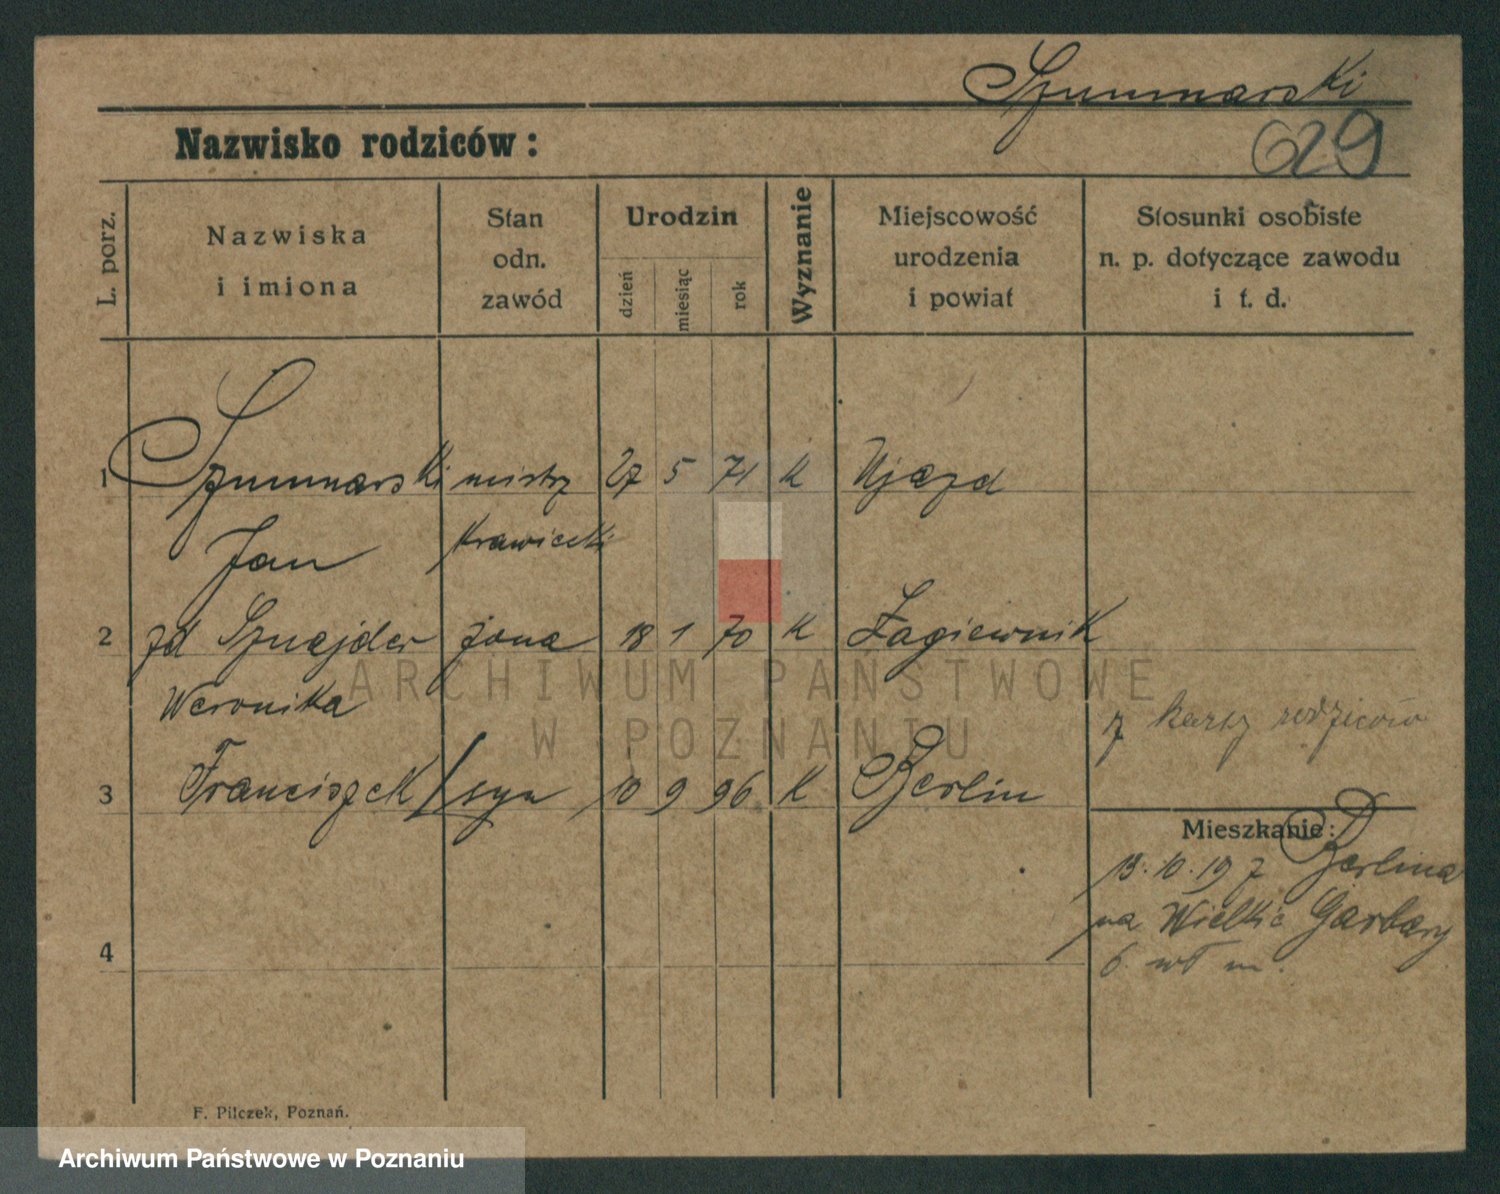 Szumnarski
Nazwisko rodziców:
629
L. porz.
Nazwiska
i imiona
Stan
odn.
zawód
Urodzin
dzień
miesiąc
rok
Wyznanie
Miejscowość
urodzenia
i powiat
Stosunki osobiste
n. p. dotyczące zawodu
i t. d.
1 Szumnarski mistrz 27 5 71 K Ujazd
Jan krawiecki
2 zd Sznajder żona 18 1 70 K Łagiewnik
Weronika
z karty rodziców
3 Franciszek syn 10 9 96 K Berlin
Mieszkanie:
13.10.19 z Berlina
na Wielkie Garbary
4
6 wł m.
ARCHIWUM PAŃSTWOWE
W POZNANIU
F. Pilczek, Poznań.
Archiwum Państwowe w Poznaniu